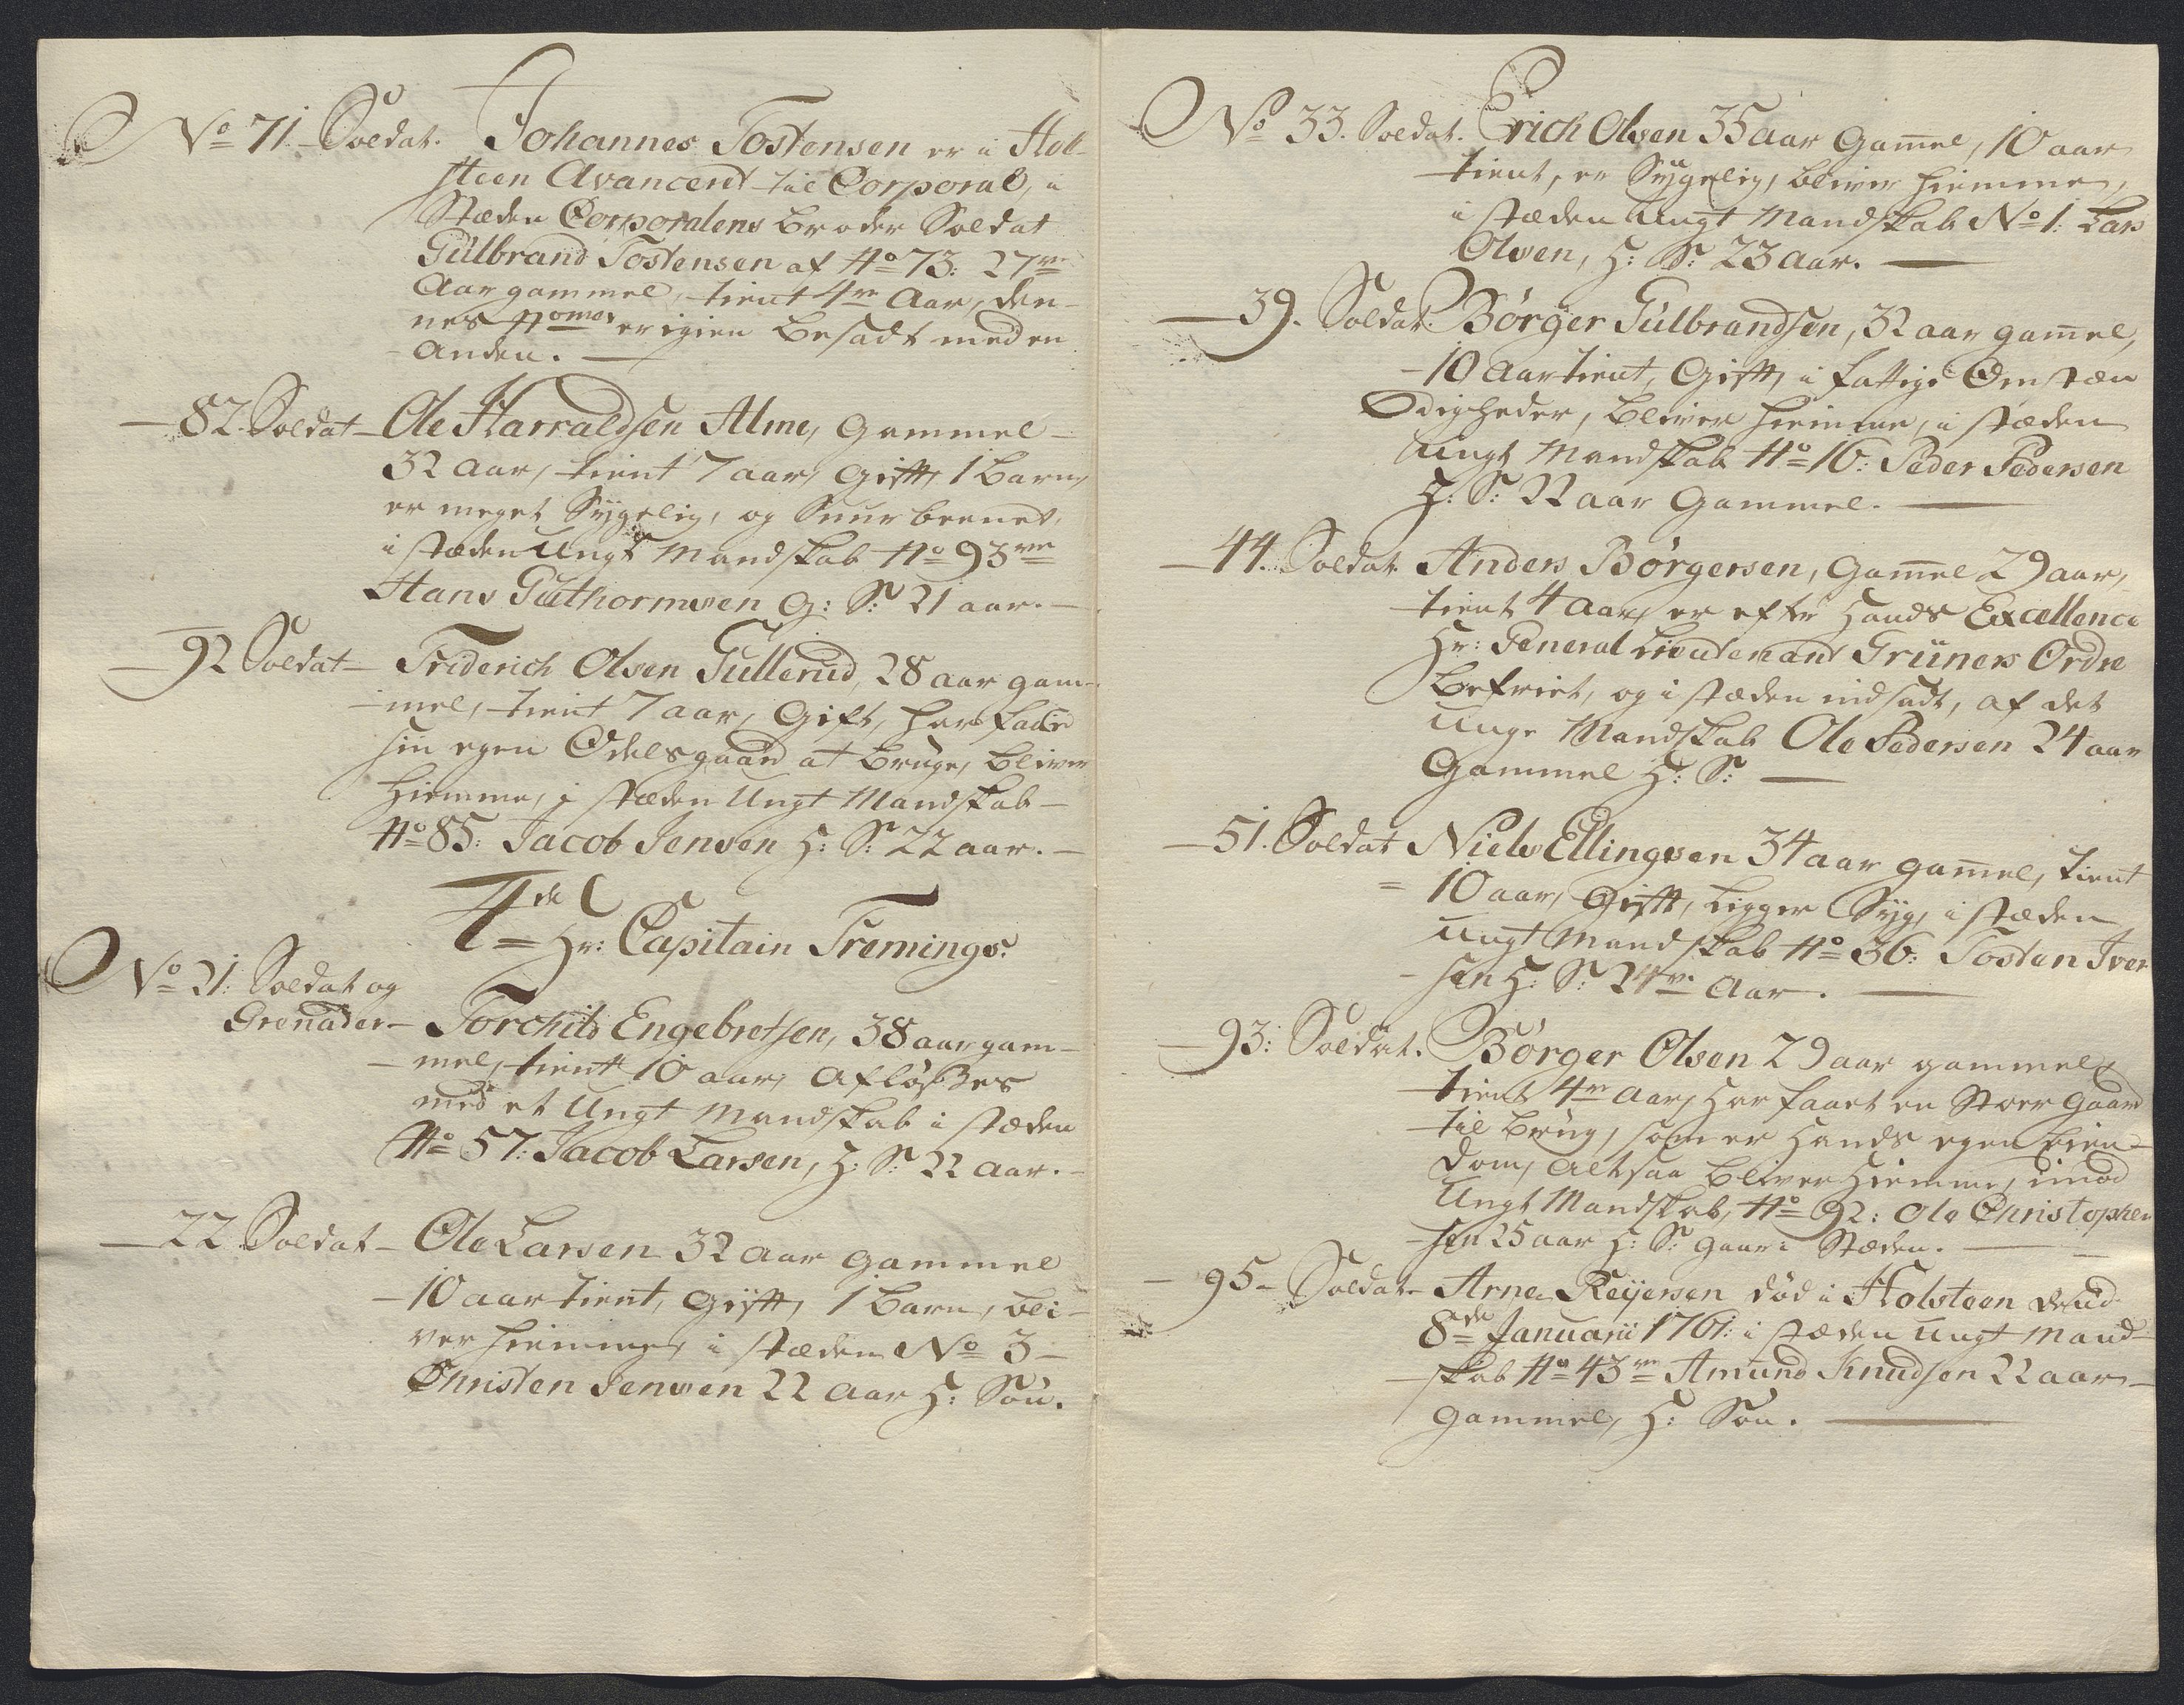 No 71. Soldat. Johannes Tostensen er i Hol-
steen Avancerit til Corporal, i
Stæden Corporalens Broder Soldat
Gulbrand Tostensen af No 73: 27ve
Aar gammel, tient 4re Aar, den-
nes Nomer er igien besadt med en
Anden.
82. Soldat Ole Harraldsen Alme, Gammel
32 aar, tient 7 aar, Gift, 1 Barn,
er meget Sygelig, og Suur beenet,
i stæden Ungt Mandskab No 93re
Hans Guthormsen G: S: 21 aar.
92 Soldat Friderich Olsen Gullerud, 28 aar gam-
mel, tient 7 aar, Gift, har faaed
sin egen Odelsgaard at bruge, bliver
hiemme, i stæden Ungt Mandskab
No 85: Jacob Jensen H: S: 22 aar.
4de Hr: Capitain Tremings.
No 21: Soldat og
Grenader Torchild Engebretsen, 38 aar gam-
mel, tient 10 aar, afløses
med et Ungt Mandskab i stæden
No 57: Jacob Larsen, H: S: 22 aar.
22. Soldat Ole Larsen 32 aar gammel
10 aar tient, Gift, 1 Barn, bli-
ver hiemme, i stæden No 3
Christen Jensen 22 aar H: Søn.
No 33. Soldat. Erich Olsen 35 aar Gamel, 10 aar
tient, er Sygelig, bliver hiemme,
i stæden Ungt Mandskab No 1: Lars
Olsen, H: S: 23 aar.
39. Soldat. Børger Gulbrandsen, 32 aar gamel,
10 aar tient, Gift, i fattige Omstæn
digheder, bliver hiemme, i stæden
Ungt Mandskab No 16: Peder Pedersen
H: S: 22 aar Gammel.
44. Soldat. Anders Børgersen, Gamel 29 aar,
tient 4 aar, er efter Hands Excellence
Hr: General Lieutenant Grüners Ordre
Befriet, og i stæden indsadt, af det
Unge Mandskab Ole Pedersen 24 aar
Gammel H: S:
51. Soldat Niels Ellingsen 34 aar gamel, tient
10 aar, Gift, ligger Syg, i stæden
Ungt Mandskab No 36: Tosten Iver
sen H: S: 24re Aar.
93: Soldat. Børger Olsen 29 aar gammel,
tient 4re Aar, har faaet en Stor Gaard
til brug, som er Hands egen Eien-
dom, altsaa bliver hiemme, imod
Ungt Mandskab, No 92: Ole Christopher
sen 25 aar H: S: gaar i Stæden.
95 Soldat Arne Reijersen død i Holsteen
8de Januarii 1761: i stæden Ungt Mand-
skab No 43re Amund Knudsen 22 aar
gammel, H: Søn.